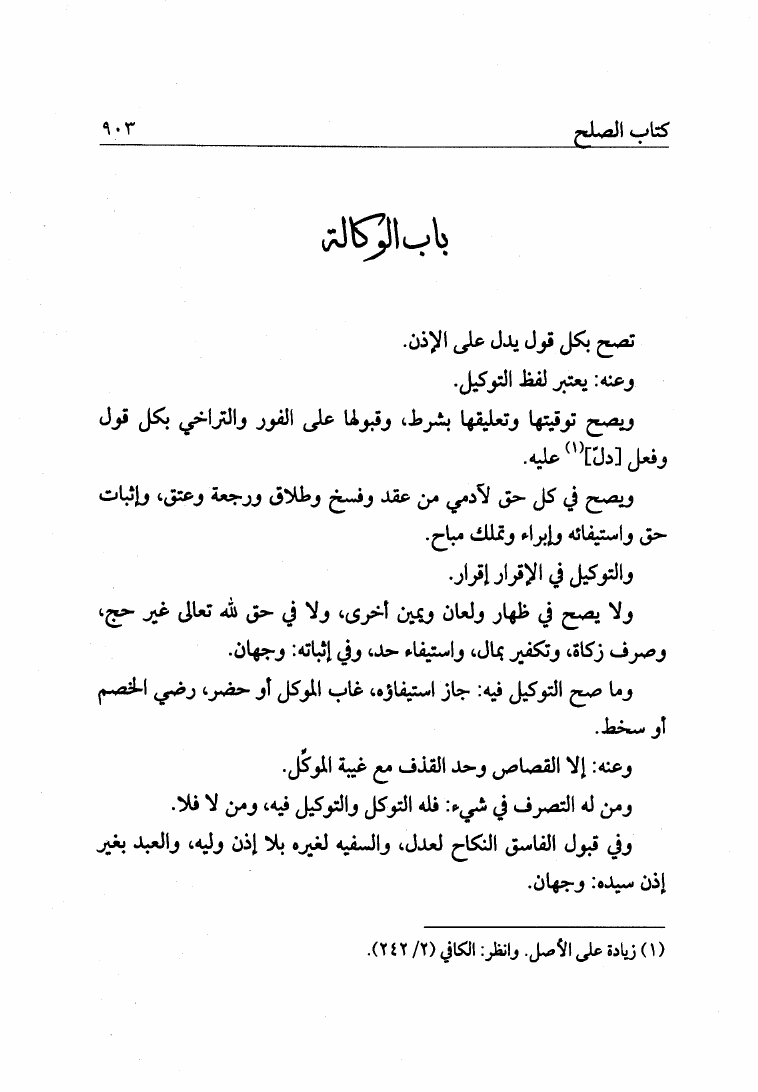 كتاب الصلح
٩٠٣
باب الوكالة
تصح بكل قول يدل على الإذن.
وعنه: يعتبر لفظ التوكيل.
ويصح توقيتها وتعليقها بشرط، وقبولها على الفور والتراخي بكل قول
وفعل [دلّ](١) عليه.
ويصح في كل حق لآدمي من عقد وفسخ وطلاق ورجعة وعتق، وإثبات
حق واستيفائه وإبراء وتملك مباح.
والتوكيل في الإقرار إقرار.
ولا يصح في ظهار ولعان ويمين أخرى، ولا في حق لله تعالى غير حج،
وصرف زكاة، وتكفير بمال، واستيفاء حد، وفي إثباته: وجهان.
وما صح التوكيل فيه: جاز استيفاؤه، غاب الموكل أو حضر، رضي الخصم
أو سخط.
وعنه: إلا القصاص وحد القذف مع غيبة الموكِّل.
ومن له التصرف في شيء: فله التوكل والتوكيل فيه، ومن لا فلا.
وفي قبول الفاسق النكاح لعدل، والسفيه لغيره بلا إذن وليه، والعبد بغير
إذن سيده: وجهان.
(١) زيادة على الأصل. وانظر: الكافي (٢/ ٢٤٢).